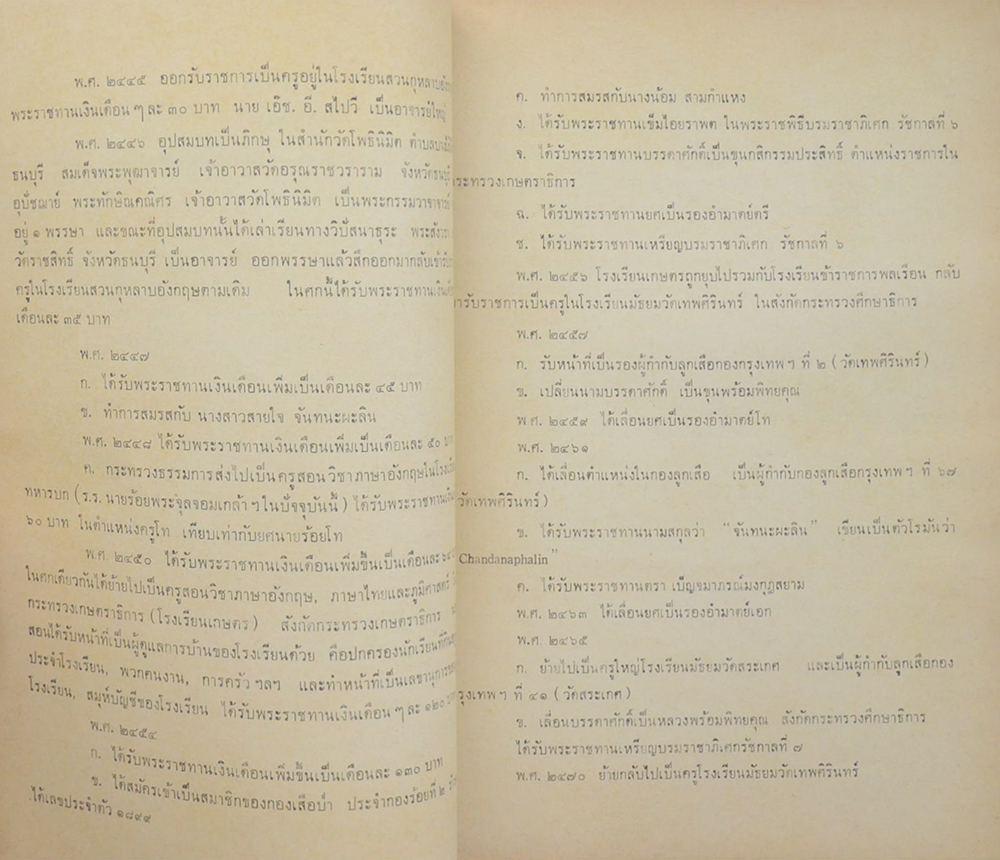 พ.ศ. ๒๔๔๕ ออกรับราชการเป็นครูอยู่ในโรงเรียนสวนกุหลาบอังก
พระราชทานเงินเดือน ๆ ละ ๓๐ บาท นาย เอ๊ช. อี. สไปวี เป็นอาจารย์ใหญ่
พ.ศ. ๒๔๔๖ อุปสมบทเป็นภิกษุ ในสำนักวัดโพธินิมิต ตำบล
ธนบุรี สมเด็จพระพุฒาจารย์ เจ้าอาวาสวัดอรุณราชวราราม จังหวัดธนบุรี
อุปัชฌาย์ พระทักษิณคณิศร เจ้าอาวาสวัดโพธินิมิต เป็นพระกรรมวาจาจารย์
อยู่ ๑ พรรษา และขณะที่อุปสมบทนั้นได้เล่าเรียนทางวิปัสนาธุระ
วัดราชสิทธิ์ จังหวัดธนบุรี เป็นอาจารย์ ออกพรรษาแล้วสึกออกมากลับเข้ารับ
ครูในโรงเรียนสวนกุหลาบอังกฤษตามเดิม ในศกนี้ได้รับพระราชทานเงิน
เดือนละ ๓๕ บาท
พ.ศ. ๒๔๔๗
ก. ได้รับพระราชทานเงินเดือนเพิ่มเป็นเดือนละ ๔๕ บาท
ข. ทำการสมรสกับ นางสาวสายใจ จันทนะผะลิน
พ.ศ. ๒๔๔๘ ได้รับพระราชทานเงินเดือนเพิ่มเป็นเดือนละ ๕๐ บาท
ค. กระทรวงธรรมการส่งไปเป็นครูสอนวิชาภาษาอังกฤษในโรงเรีย
ทหารบก ( ร.ร. นายร้อยพระจุลจอมเกล้า ฯ ในปัจจุบันนี้ ) ได้รับพระราชทาน
๖๐ บาท ในตำแหน่งครูโท เทียบเท่ากับยศนายร้อยโท
พ.ศ. ๒๔๕๐ ได้รับพระราชทานเงินเดือนเพิ่มขึ้นเป็นเดือนละ
ในศกเดียวกันได้ย้ายไปเป็นครูสอนวิชาภาษาอังกฤษ, ภาษาไทยและภูมิศาสตร์
กระทรวงเกษตราธิการ ( โรงเรียนเกษตร ) สังกัดกระทรวงเกษตราธิการ
สอนได้รับหน้าที่เป็นผู้ดูแลการบ้านของโรงเรียนด้วย คือปกครองนักเรียนที่
ประจำโรงเรียน, พวกคนงาน, การครัว ฯลฯ และทำหน้าที่เป็นเลขานุการ
โรงเรียน, สมุห์บัญชีของโรงเรียน ได้รับพระราชทานเงินเดือน ๆ ละ ๑๒๐
พ.ศ. ๒๔๕๔
ก. ได้รับพระราชทานเงินเดือนเพิ่มขึ้นเป็นเดือนละ ๑๓๐ บาท
ข. ได้สมัครเข้าเป็นสมาชิกของกองเสือป่า ประจำกองร้อยที่ ๒
ได้เลขประจำตัว ๑๘๙๙
ค. ทำการสมรสกับนางน้อม สามกำแหง
ง. ได้รับพระราชทานเข็มไอยราพต ในพระราชพิธีบรมราชาภิเศก รัชกาลที่ ๖
จ. ได้รับพระราชทานบรรดาศักดิ์เป็นขุนกสิกรรมประสิทธิ์ ตำแหน่งราชการใน
ระทรวงเกษตราธิการ
ฉ. ได้รับพระราชทานยศเป็นรองอำมาตย์ตรี
ช. ได้รับพระราชทานเหรียญบรมราชาภิเศก รัชกาลที่ ๖
พ.ศ. ๒๔๕๖ โรงเรียนเกษตรถูกยุบไปรวมกับโรงเรียนข้าราชการพลเรือน กลับ
ารับราชการเป็นครูในโรงเรียนมัธยมวัดเทพศิรินทร์ ในสังกัดกระทรวงศึกษาธิการ
พ.ศ. ๒๔๕๗
ก. รับหน้าที่เป็นรองผู้กำกับลูกเสือกองกรุงเทพ ฯ ที่ ๒ ( วัดเทพศิรินทร์ )
ข. เปลี่ยนนามบรรดาศักดิ์ เป็นขุนพร้อมพิทยคุณ
พ.ศ. ๒๔๕๙ ได้เลื่อนยศเป็นรองอำมาตย์โท
พ.ศ. ๒๔๖๑
ก. ได้เลื่อนตำแหน่งในกองลูกเสือ เป็นผู้กำกับกองลูกเสือกรุงเทพ ฯ ที่ ๖๗
วัดเทพศิรินทร์ )
ข. ได้รับพระราชทานนามสกุลว่า “จันทนะผะลิน” เขียนเป็นตัวโรมันว่า
Chandanaphalin”
ค. ได้รับพระราชทานตรา เบ็ญจมาภรณ์มงกุฎสยาม
พ.ศ. ๒๔๖๓ ได้เลื่อนยศเป็นรองอำมาตย์เอก
พ.ศ. ๒๔๖๕
ก. ย้ายไปเป็นครูใหญ่โรงเรียนมัธยมวัดสระเกศ และเป็นผู้กำกับลูกเสือกอง
รุงเทพ ฯ ที่ ๔๑ ( วัดสระเกศ )
ข. เลื่อนบรรดาศักดิ์เป็นหลวงพร้อมพิทยคุณ สังกัดกระทรวงศึกษาธิการ
ได้รับพระราชทานเหรียญบรมราชาภิเศกรัชกาลที่ ๗
พ.ศ. ๒๔๗๐ ย้ายกลับไปเป็นครูโรงเรียนมัธยมวัดเทพศิรินทร์